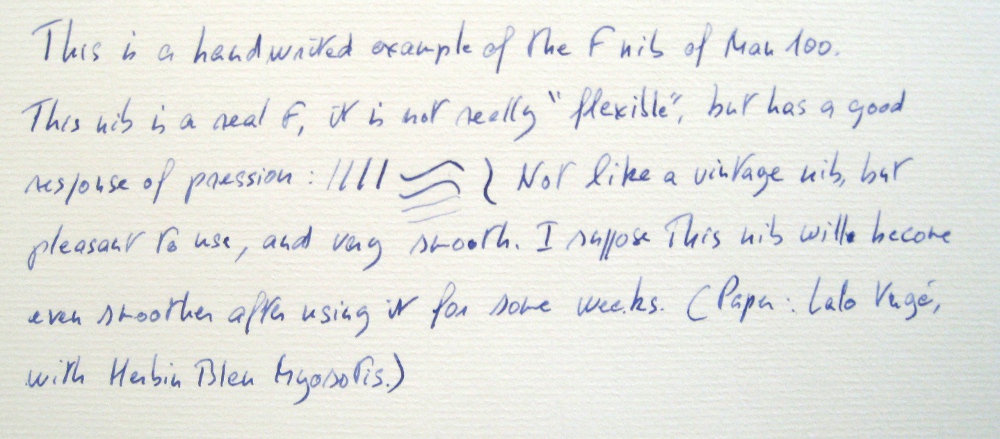 This is a handwrited example of the F nib of Man 100.
This nib is a real F, it is not really "flexible", but has a good
response of pression : Not like a vintage nib, but
pleasant to use, and very smooth. I suppose this nib will become
even smoother after using it for some weeks. (Paper : Lalo Vergé,
with Herbin Bleu Myosotis.)